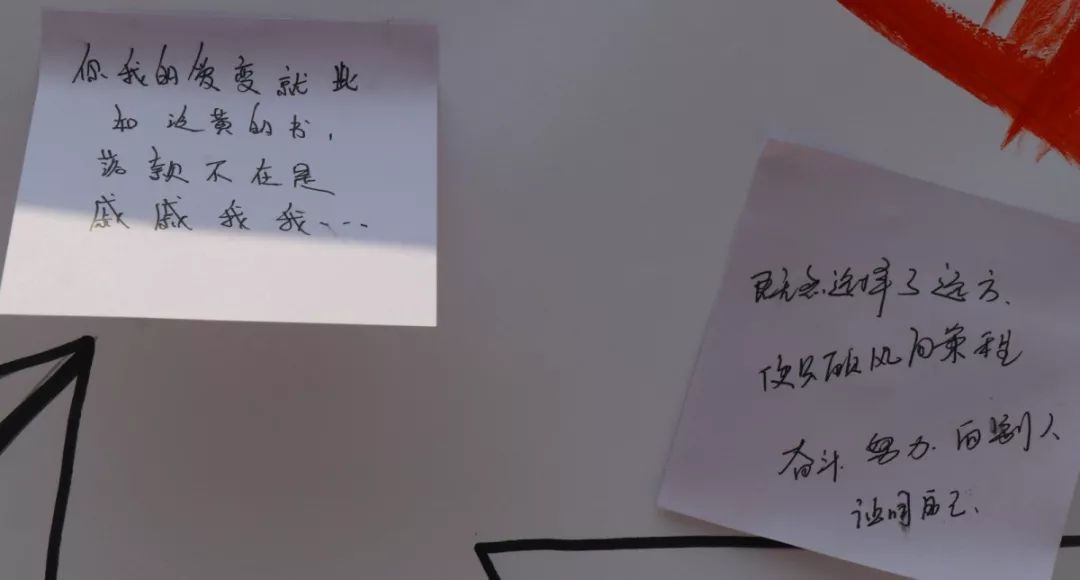 你我的爱变就此
如泛黄的书，
落款不在是
戚戚我我……
既然选择了远方、
便只顾风雨兼程
奋斗 努力 向别人
证明自己、